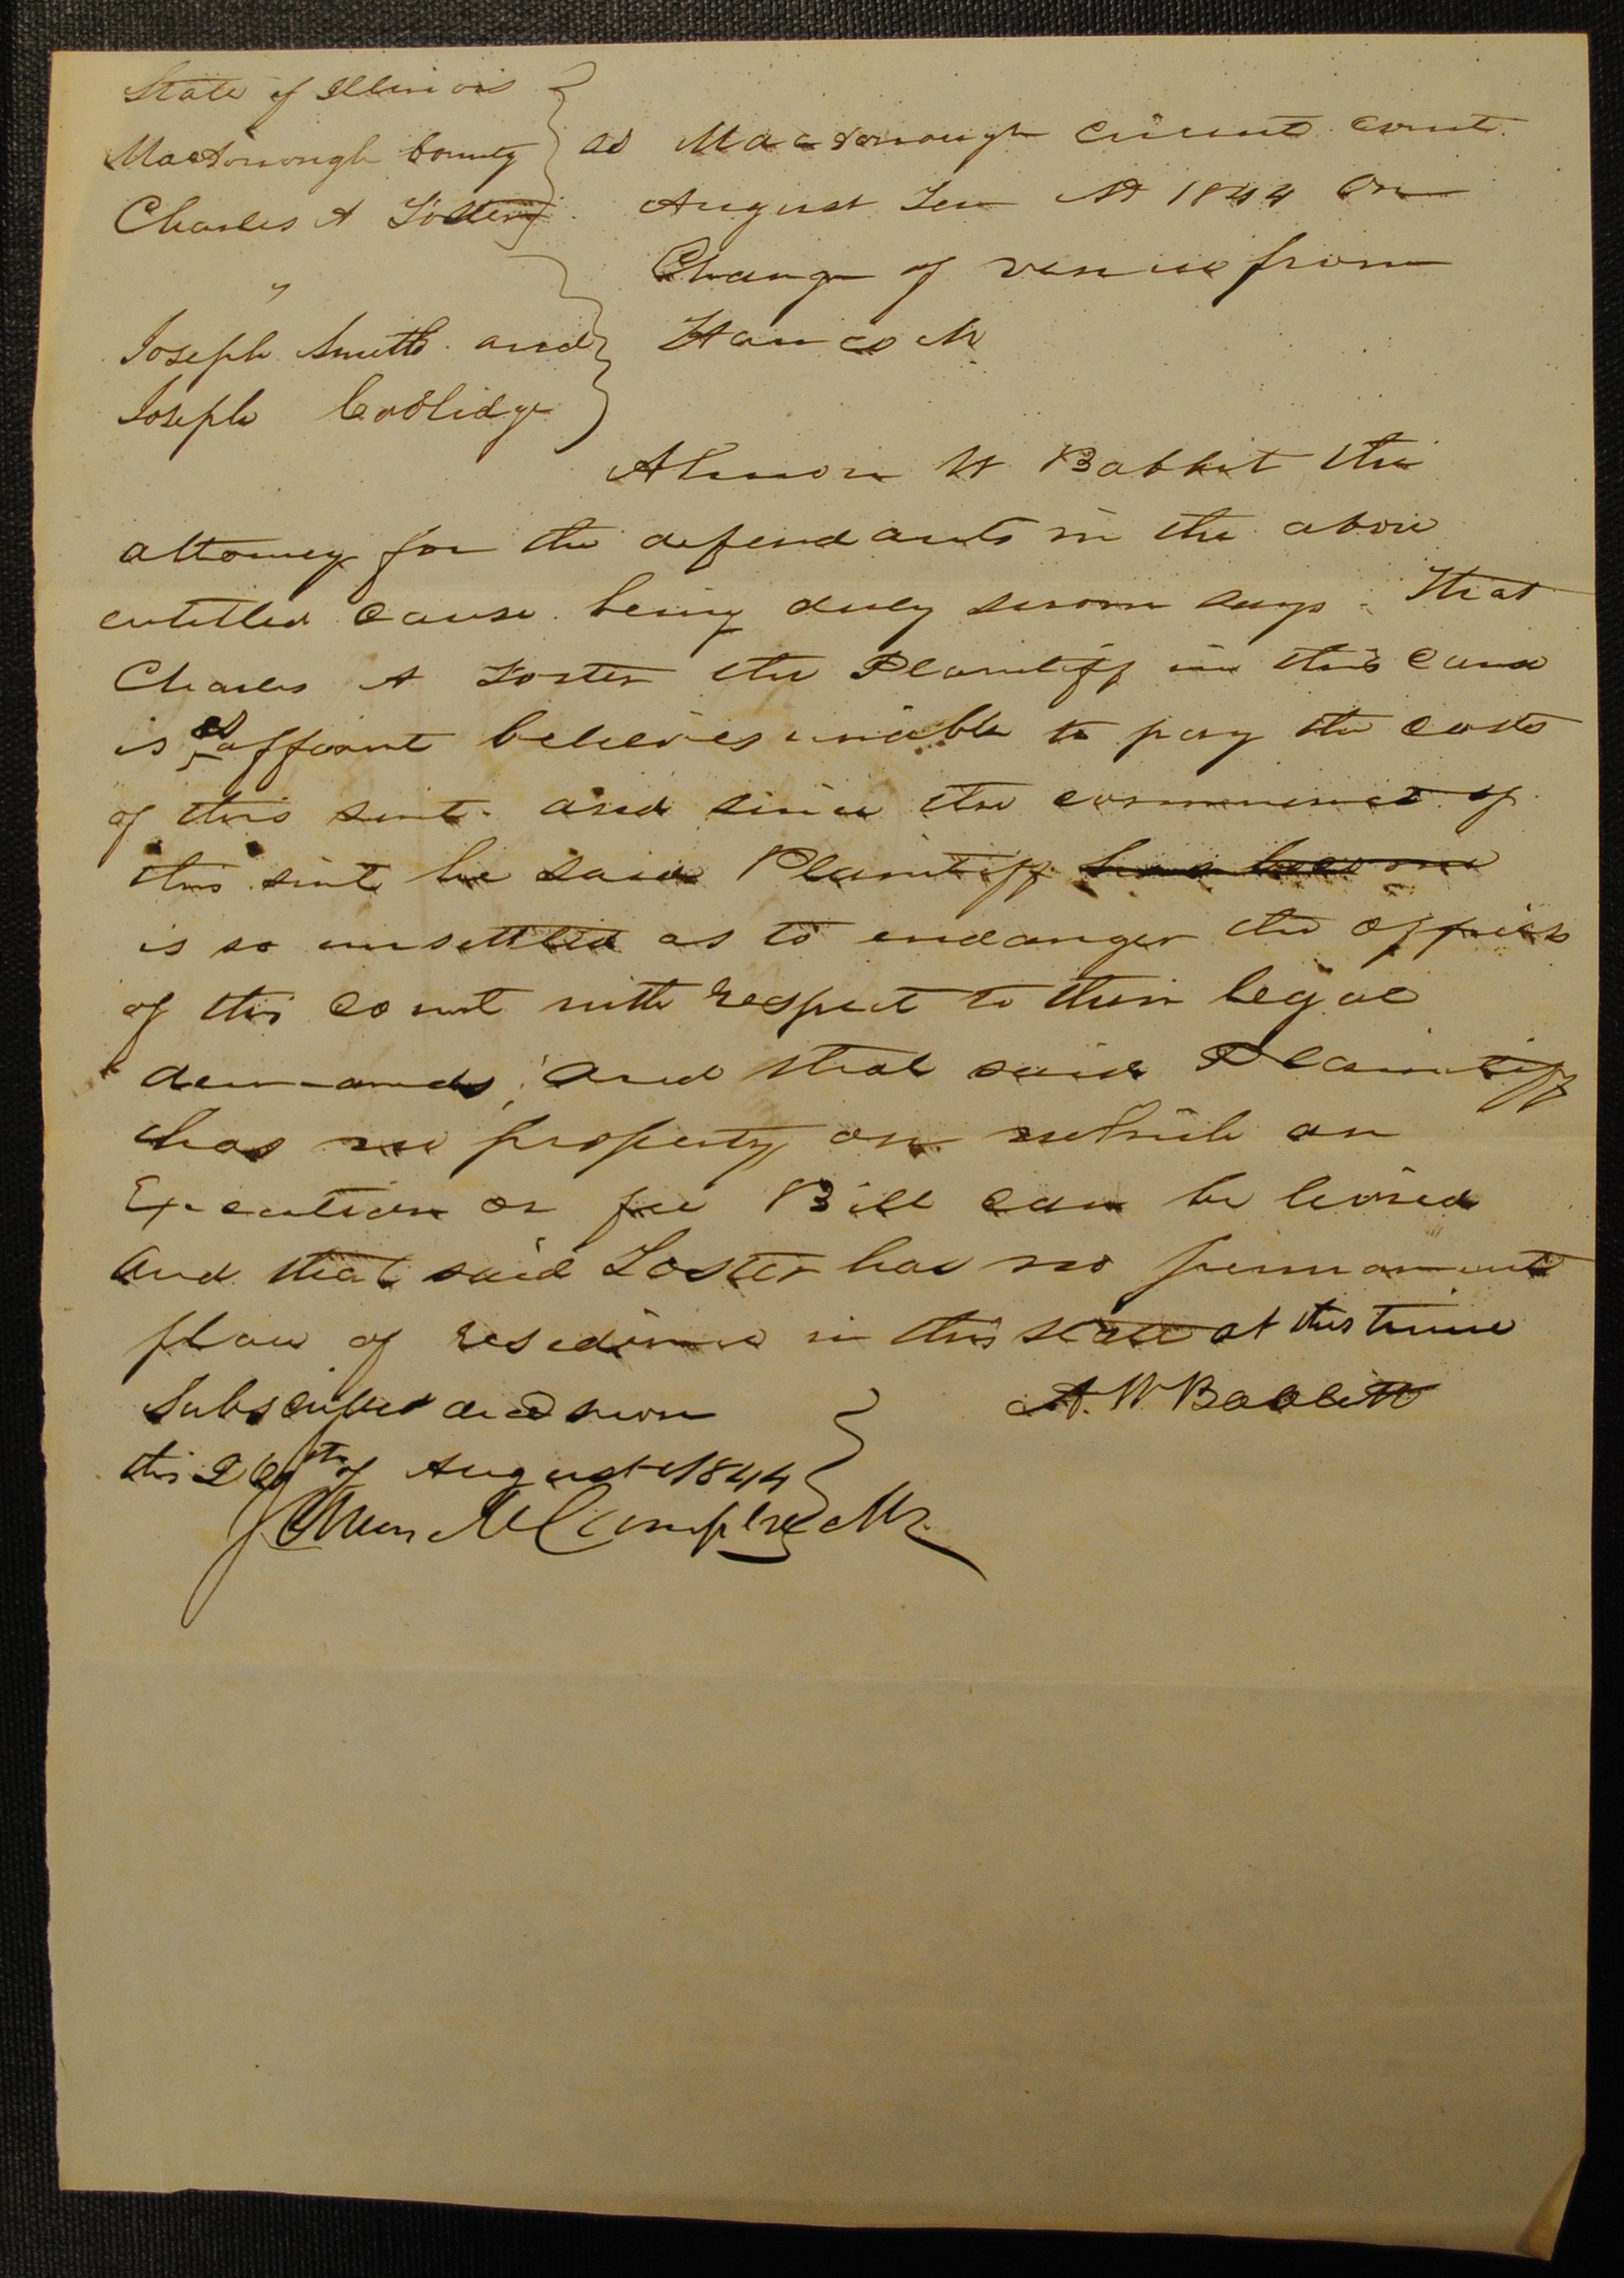 State of Illinois
Macdonough County } ss Macdonough circuit court.
Charles A Foster } August Ter AD 1844 On
Change of venue from
"
Joseph Smith and } Hancock
Joseph Coolidge }
Almon W Babbit the
attorney for the defendants in the above
entitled cause being duly sworn says that
Charles A Foster the Plaintiff in this cause
is as affiant believes unable to pay the costs
of this suit. and since the commencmet of
this suit he said Plaintiff has become
is so unsettled as to endanger the officers
of this court with respect to their legal
demands, and that said Plaintiff
has no property on which an
Execution or fee Bill can be levied
and that said Foster has no permanent
place of residence in this state at this time
Subscribed and sworn } A. W. Babbitt
this 20th of August 1844
Campbell Clk